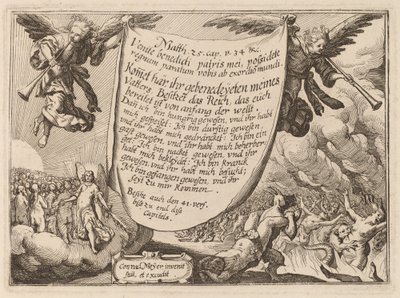 Matth. 25. cap. v. 34. &c.
Venite benedicti patris mei, possidete
regnum paratum vobis ab exordio mundi.
Komet har ihr gebenedeyeten meines
Vatters. Besitzet das Reich, das euch
bereitet ist von anfang der welt.
Dan ich bin hungrig gewesen, und ihr habt
mich gespeiset: Ich bin durstig gewesen,
und ihr habt mich gedräncket: Ich bin ein
gast gewesen, und ihr habt mich beherber-
get: Ich bin nacket gewesen, und ihr
habt mich bekleidet: Ich bin kranck
gewesen, und ihr habt mich besucht;
Ich bin gefangen gewesen, und ihr
seit zu mir kommen.
Besihe auch den 41. vers.
biß zu end diß
Capitels.
Conrad Meyer invenit
fecit, et excudit